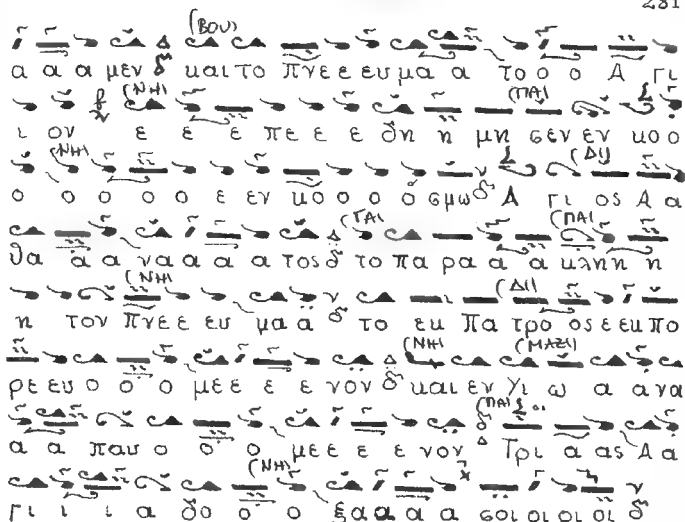 281
(ΒΟΥ)
α α α μεν δ και το Πνε ε ευ μα α το ο ο Α γι
(ΝΗ) (ΠΑ)
ι ον ε ε ε πε ε ε δη η μη σεν εν κο ο
(ΝΗ) (ΔΙ)
ο ο ο ο ο ε εν κο ο ο ο σμω δ Α γι ος Α α
(ΓΑ) (ΠΑ)
θα α α να α α α τος δ το πα ρα α α κλη η η
(ΝΗ) (ΔΙ)
η τον Πνε ε ευ μα α δ το εκ Πα τρο ος ε εκ πο
(ΝΗ) (ΜΑΖΙ)
ρε ευ ο ο ο με ε ε ε νον δ και εν Υι ω α α να
(ΠΑ)
α α παυ ο ο ο με ε ε ε νον Τρι α ας Α α
(ΝΗ)
γι ι ι α δο ο ο ξα α α α σοι οι οι οι δ